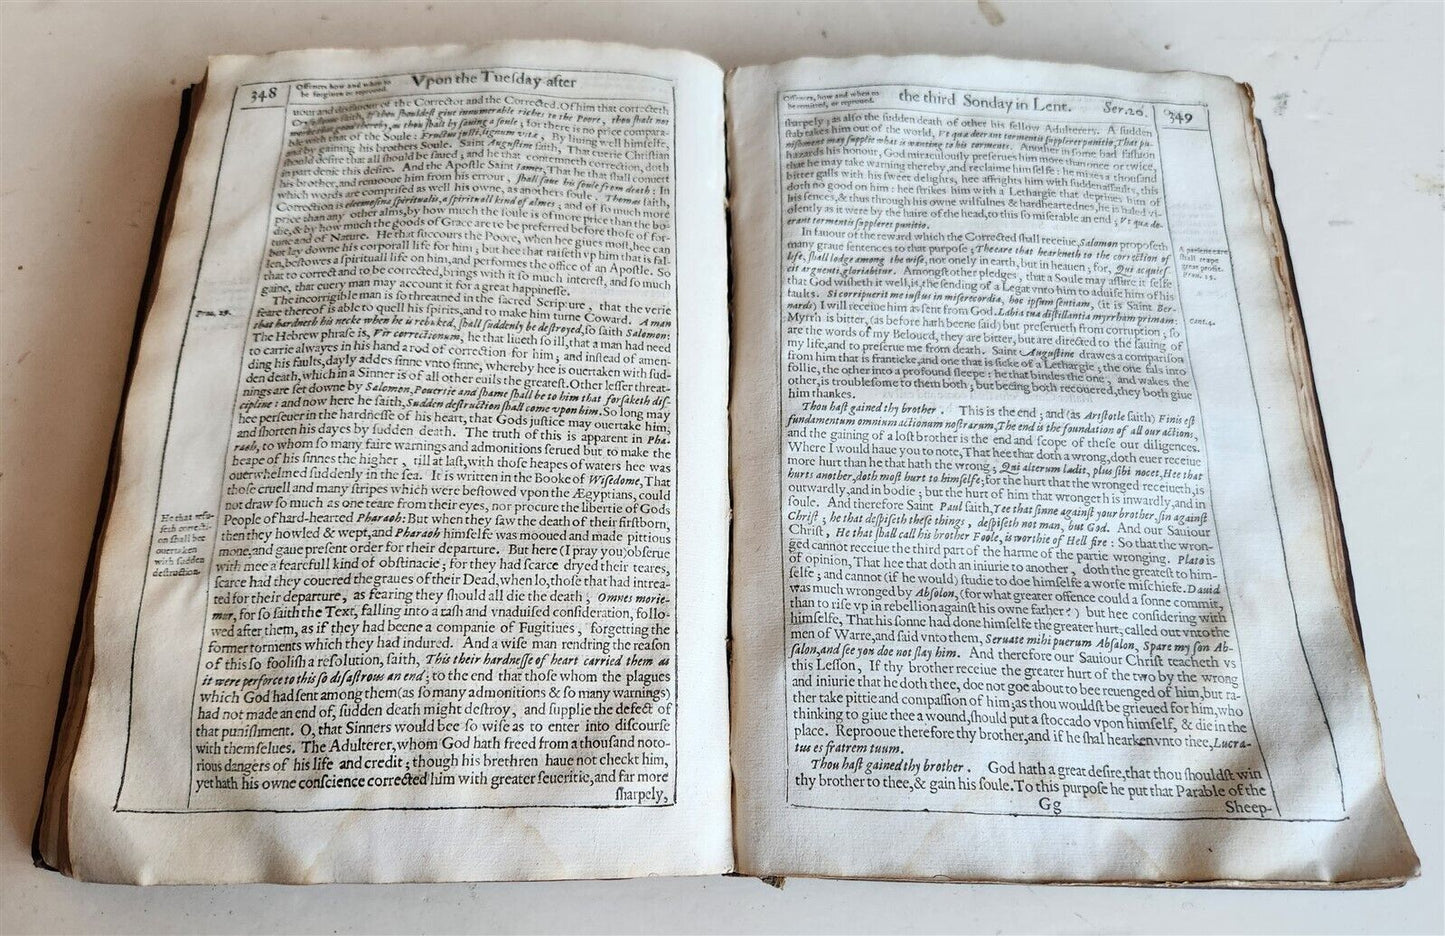 348
Offences how and when to
be forgiven or reproved.
Vpon the Tueſday after
uour and disfauour of the Corrector and the Corrected. Of him that correcteth
Chryſoſtome ſaith, If thou ſhouldeſt giue innumerable riches to the Poore, thou ſhalt not
doe more good thereby, as thou ſhalt by ſauing a ſoule; for there is no price compara-
ble with that of the Soule: Fructus juſti, lignum vitæ, By liuing well himſelfe,
and by gaining his brothers Soule. Saint Auguſtine ſaith, That euerie Chriſtian
ſhould deſire that all ſhould be ſaued; and he that contemneth correction, doth
in part denie this deſire. And the Apoſtle Saint Iames, That he that ſhall conuert
his brother, and remooue him from his errour, ſhall ſaue his ſoule from death: In
which words are compriſed as well his owne, as anothers ſoule. Thomas ſaith,
Correction is eleemoſina ſpiritualis, a ſpirituall kind of almes; and of ſo much more
price than any other alms, by how much the ſoule is of more price than the bo-
die, & by how much the goods of Grace are to be preferred before thoſe of for-
tune and of Nature. He that ſuccours the Poore, when hee giues moſt, hee can
but lay downe his corporall life for him; but hee that raiſeth vp him that is fal-
len, beſtowes a ſpirituall life on him, and performes the office of an Apoſtle. So
that to correct and to be corrected, brings with it ſo much intereſt, and ſo much
gaine, that euery man may account it for a great happineſſe.
The incorrigible man is ſo threatned in the ſacred Scripture, that the verie
feare thereof is able to quell his ſpirits, and to make him turne Coward. A man
that hardneth his necke when he is rebuked, ſhall ſuddenly be deſtroyed, ſo ſaith Salomon:
Prou. 29.
The Hebrew phraſe is, Vir correctionum, he that liueth ſo ill, that a man had need
to carrie alwayes in his hand a rod of correction for him; and inſtead of amen-
ding his faults, dayly addes ſinne vnto ſinne, whereby hee is ouertaken with ſud-
den death, which in a Sinner is of all other euils the greateſt. Other leſſer threat-
nings are ſet downe by Salomon, Pouertie and ſhame ſhall be to him that forſaketh diſ-
cipline: and now here he ſaith, Sudden deſtruction ſhall come vpon him. So long may
hee perſeuer in the hardneſſe of his heart, that Gods juſtice may ouertake him,
and ſhorten his dayes by ſudden death. The truth of this is apparent in Pha-
raoh, to whom ſo many faire warnings and admonitions ſerued but to make the
heape of his ſinnes the higher, till at laſt, with thoſe heapes of waters hee was
ouerwhelmed ſuddenly in the ſea. It is written in the Booke of Wiſedome, That
thoſe cruell and many ſtripes which were beſtowed vpon the Ægyptians, could
not draw ſo much as one teare from their eyes, nor procure the libertie of Gods
People of hard-hearted Pharaoh: But when they ſaw the death of their firſtborn,
He that refu-
ſeth correcti-
on ſhall bee
ouertaken
with ſudden
deſtruction.
then they howled & wept, and Pharaoh himſelfe was mooued and made pittious
mone, and gaue preſent order for their departure. But here (I pray you) obſerue
with mee a fearefull kind of obſtinacie; for they had ſcarce dryed their teares,
ſcarce had they couered the graues of their Dead, when lo, thoſe that had intrea-
ted for their departure, as fearing they ſhould all die the death; Omnes morie-
mur, for ſo ſaith the Text, falling into a raſh and vnaduiſed conſideration, follo-
wed after them, as if they had beene a companie of Fugitiues, forgetting the
former torments which they had indured. And a wiſe man rendring the reaſon
of this ſo fooliſh a reſolution, ſaith, This their hardneſſe of heart carried them as
it were perforce to this ſo diſaſtrous an end; to the end that thoſe whom the plagues
which God had ſent among them (as ſo many admonitions & ſo many warnings)
had not made an end of, ſudden death might deſtroy, and ſupplie the defect of
that puniſhment. O, that Sinners would bee ſo wiſe as to enter into diſcourſe
with themſelues. The Adulterer, whom God hath freed from a thouſand noto-
rious dangers of his life and credit; though his brethren haue not checkt him,
yet hath his owne conſcience corrected him with greater ſeueritie, and far more
ſharpely,
Offences, how and when to
be remitted, or reproued.
the third Sonday in Lent.
Ser. 20.
349
ſharpely; as alſo the ſudden death of other his fellow Adulterers. A ſudden
ſtab takes him out of the world, Vt quæ deerant tormentis ſuppleret punitio, That pu-
niſhment may ſupplie what is wanting to his torments. Another in ſome bad faſhion
hazards his honour, God miraculouſly preſerues him more than once or twice,
that he may take warning thereby, and reclaime himſelfe: he mixes a thouſand
bitter galls with his ſweet delights, hee affrights him with ſudden aſſaults, this
doth no good on him: hee ſtrikes him with a Lethargie that depriues him of
his ſences, & thus through his owne wilfulnes & hardheartednes, he is haled vi-
olently as it were by the haire of the head, to this ſo miſerable an end; Vt quæ de-
erant tormentis ſuppleret punitio.
In fauour of the reward which the Corrected ſhall receiue, Salomon propoſeth
many graue ſentences to that purpoſe; The eare that hearkeneth to the correction of
life, ſhall lodge among the wiſe, not onely in earth, but in heauen; for, Qui acquieſ-
cit arguenti, gloriabitur. Amongſt other pledges, that a Soule may aſſure it ſelfe
ſhall reape
great profit.
Prou. 15.
that God wiſheth it well, is, the ſending of a Legat vnto him to aduiſe him of his
faults. Si corripuerit me iuſtus in miſericordia, hoc ipſum ſentiam, (it is Saint Ber-
nards) I will receiue him as ſent from God. Labia tua diſtillantia myrrham primam:
Cant. 4.
Myrrh is bitter, (as before hath beene ſaid) but preſerueth from corruption; ſo
are the words of my Beloued, they are bitter, but are directed to the ſauing of
my life, and to preſerue me from death. Saint Auguſtine drawes a compariſon
from him that is franticke, and one that is ſicke of a Lethargie; the one falls into
follie, the other into a profound ſleepe: he that bindes the one, and wakes the
other, is troubleſome to them both; but beeing both recouered, they both giue
him thankes.
Thou haſt gained thy brother. This is the end; and (as Ariſtotle ſaith) Finis eſt
fundamentum omnium actionum noſtrarum, The end is the foundation of all our actions,
and the gaining of a loſt brother is the end and ſcope of theſe our diligences.
Where I would haue you to note, That hee that doth a wrong, doth euer receiue
more hurt than he that hath the wrong; Qui alterum lædit, plus ſibi nocet, Hee that
hurts another, doth moſt hurt to himſelfe; for the hurt that the wronged receiueth, is
outwardly, and in bodie; but the hurt of him that wrongeth is inwardly, and in
ſoule. And therefore Saint Paul ſaith, Yee that ſinne againſt your brother, ſin againſt
Chriſt; he that deſpiſeth theſe things, deſpiſeth not man, but God. And our Sauiour
Chriſt, He that ſhall call his brother Foole, is worthie of Hell fire: So that the wron-
ged cannot receiue the third part of the harme of the partie wronging. Plato is
of opinion, That hee that doth an iniurie to another, doth the greateſt to him-
ſelfe; and cannot (if he would) ſtudie to doe himſelfe a worſe miſchiefe. Dauid
was much wronged by Abſolon, (for what greater offence could a ſonne commit,
than to riſe vp in rebellion againſt his owne father?) but hee conſidering with
himſelfe, That his ſonne had done himſelfe the greater hurt; called out vnto the
men of Warre, and ſaid vnto them, Seruate mihi puerum Abſalon, Spare my ſon Ab-
ſalon, and ſee you doe not ſlay him. And therefore our Sauiour Chriſt teacheth vs
this Leſſon, If thy brother receiue the greater hurt of the two by the wrong
and iniurie that he doth thee, doe not goe about to bee reuenged of him, but ra-
ther take pittie and compaſſion of him; as thou wouldſt be grieued for him, who
thinking to giue thee a wound, ſhould put a ſtoccado vpon himſelf, & die in the
place. Reprooue therefore thy brother, and if he ſhal hearken vnto thee, Lucra-
tus es fratrem tuum.
Thou haſt gained thy brother. God hath a great deſire, that thou ſhouldſt win
thy brother to thee, & gain his ſoule. To this purpoſe he put that Parable of the
Gg
Sheep-